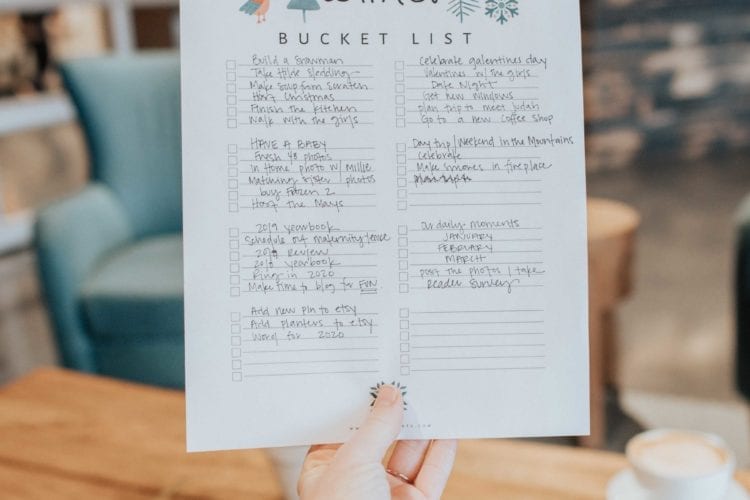 BUCKET LIST
Build a Snowman
Take Hilde Sledding
Make Soup from Scratch
Host Christmas
Finish the Kitchen
Walk with the girls
HAVE A BABY
Fresh 48 photos
In Home photo w/ Millie
Matching sister photos
buy Frozen 2
Host the Mays
2019 yearbook
Schedule out maternity leave
2019 Review
2018 yearbook
Ring in 2020
Make time to blog for FUN
Add new pin to etsy
Add planters to etsy
Word for 2020
Celebrate galentines day
Valentines w/ the girls
Date Night
Get new windows
plan trip to meet Judah
Go to a new coffee shop
Day trip / Weekend in the Mountains
Celebrate
Make smores in fireplace
daily moments
JANUARY
FEBRUARY
MARCH
post the photos / take
Reader Survey